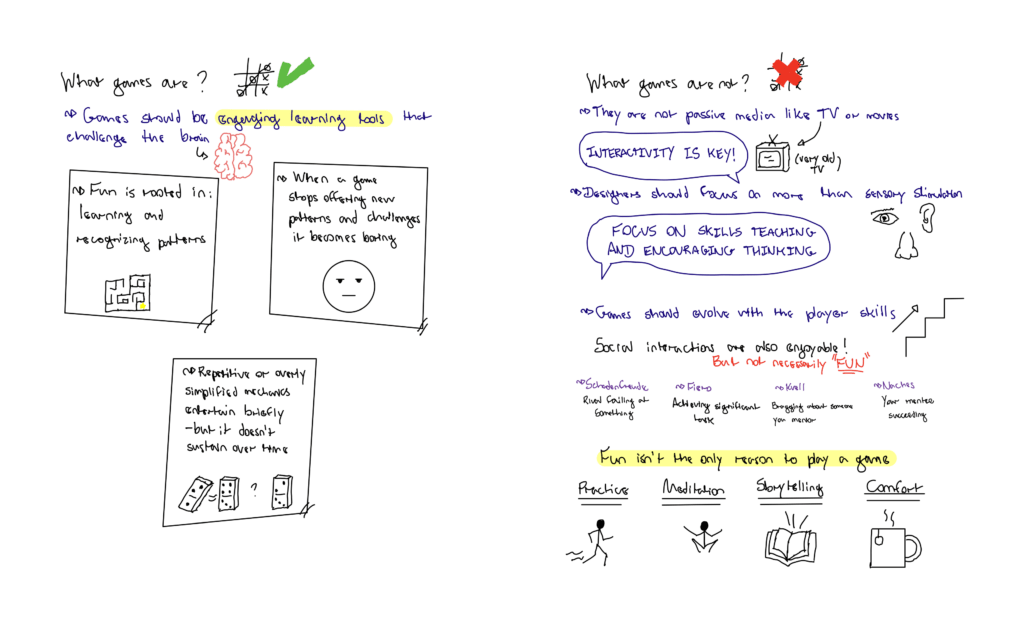 What games are?
~ Games should be engaging learning tools that
challenge the brain
~ Fun is rooted in:
learning and
recognizing patterns
~ When a game
stops offering new
patterns and challenges
it becomes boring
~ Repetitive or overly
simplified mechanics
entertain briefly
-but it doesn't
sustain over time
?
What games are not?
~ They are not passive media like TV or movies
INTERACTIVITY IS KEY!
(very old)
TV
~ Designers should focus on more than sensory stimulation
FOCUS ON SKILLS TEACHING
AND ENCOURAGING THINKING
~ Games should evolve with the player skills
Social interactions are also enjoyable!
But not necessarily "FUN"
~ Schadenfreude
Rival failing at
something
~ Fiero
Achieving significant
task
~ Kvell
Bragging about someone
you mentor
~ Naches
Your mentee
succeeding
Fun isn't the only reason to play a game
Practice Meditation Storytelling Comfort